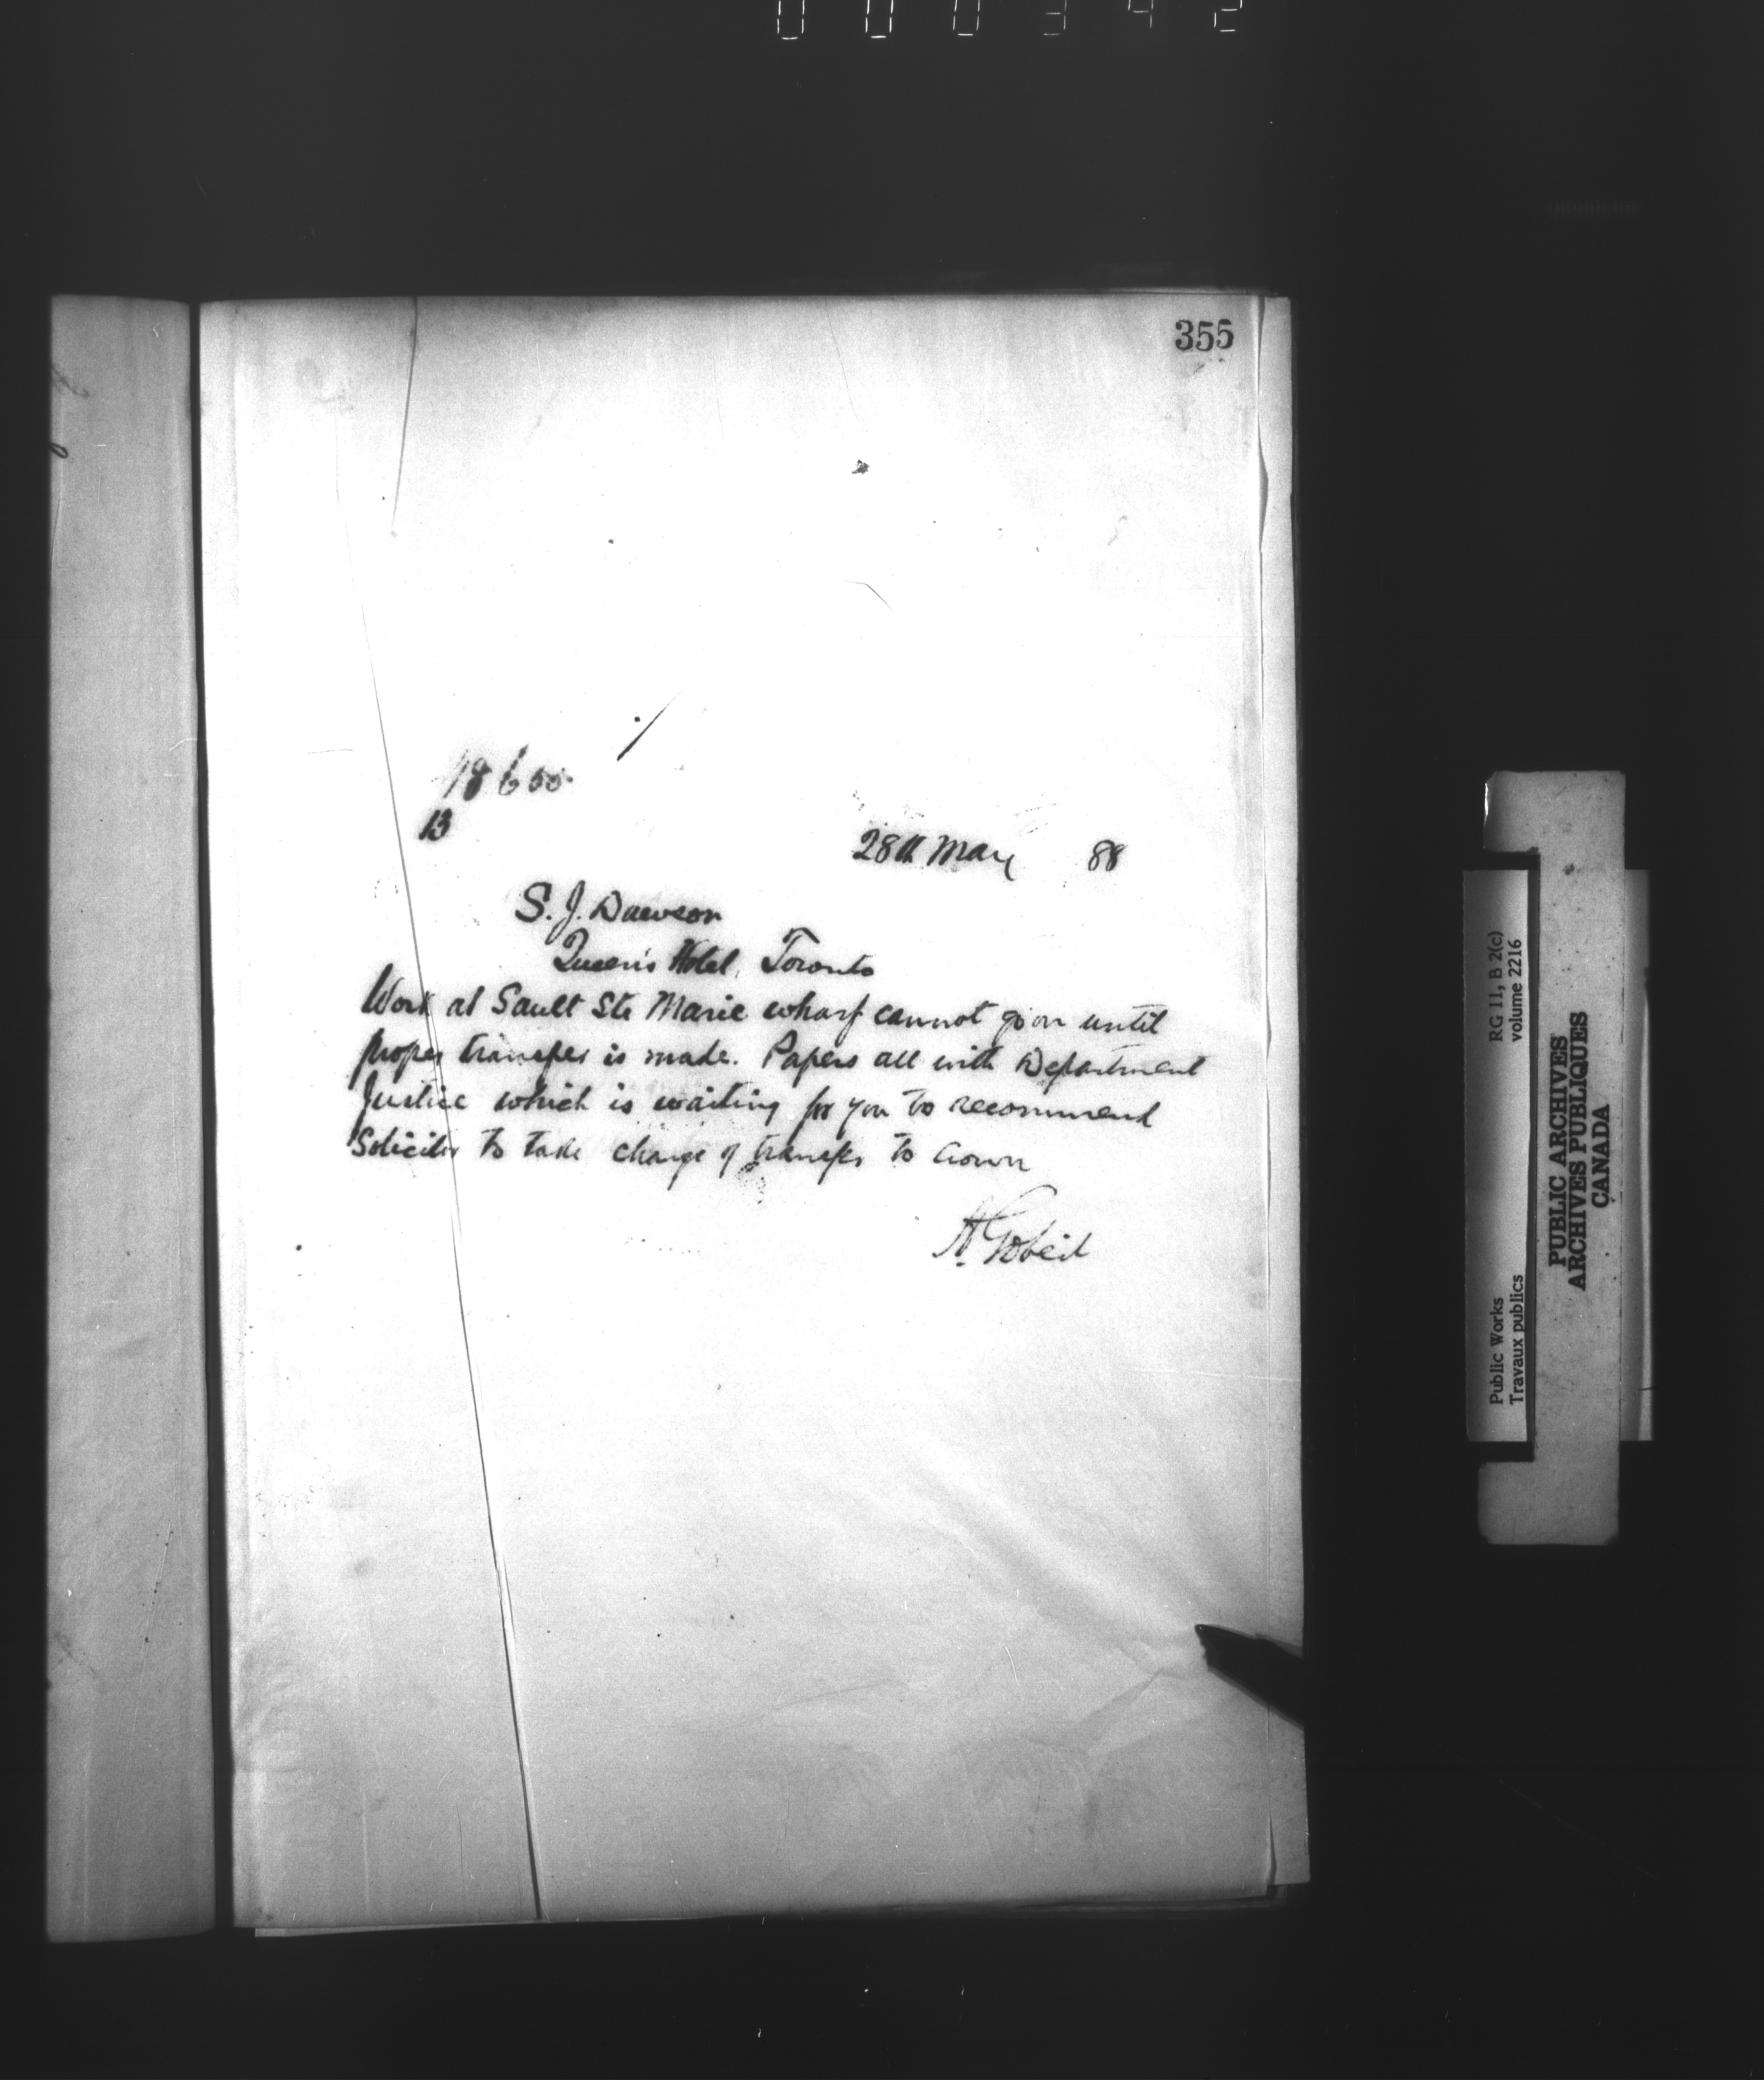 000342
355
18600
13
28th May 88
S. J. Dawson
Queen's Hotel, Toronto
Work at Sault Ste Marie wharf cannot go on until
proper transfer is made. Papers all with Department
Justice which is waiting for you to recommend
Solicitor to take charge of transfer to Crown
A. Gobeil
RG 11, B 2(c)
volume 2216
Public Works
Travaux publics
PUBLIC ARCHIVES
ARCHIVES PUBLIQUES
CANADA